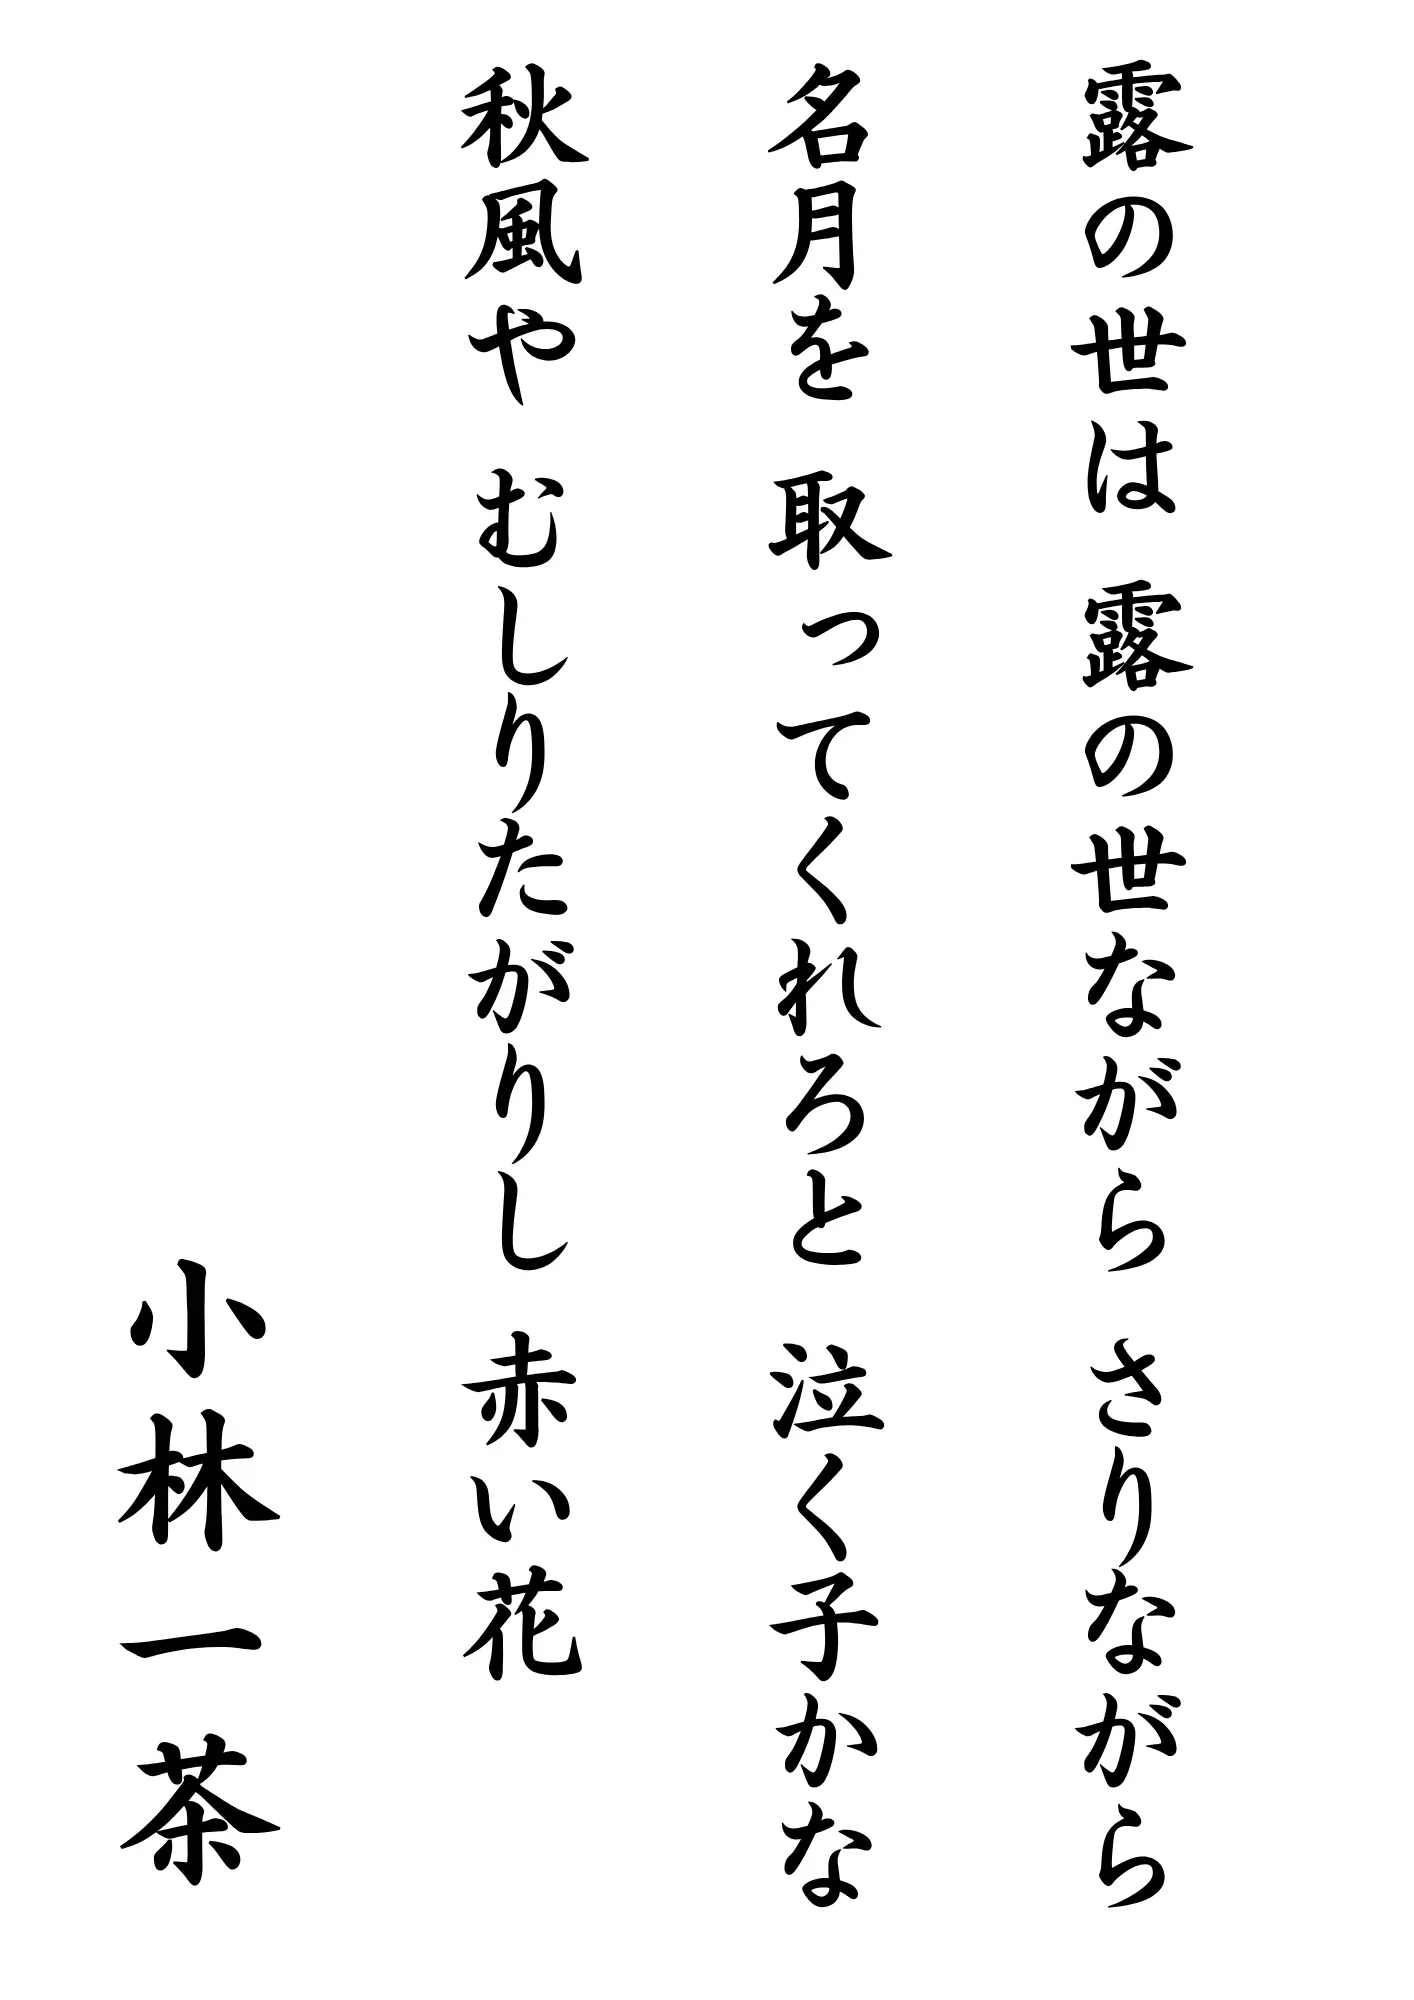 露の世は 露の世ながら さりながら
名月を 取ってくれろと 泣く子かな
秋風や むしりたがりし 赤い花
小林一茶